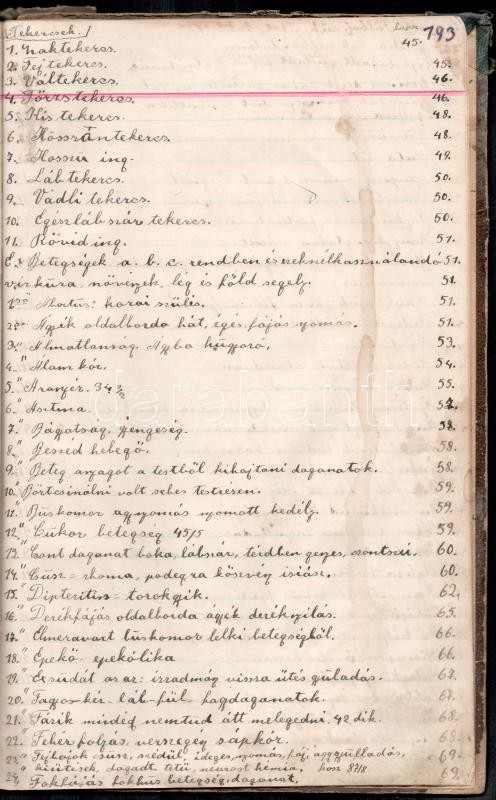 Tekercsek. lapn 193
1. Naktekercs. 45.
2. Fejtekercs. 45.
3. Váltekercs. 46.
4. Törzstekercs. 46.
5. Kis tekercs. 48.
6. Kösszántekercs. 48.
7. Hosszu ing. 49.
8. Láb tekercs. 50.
9. Vádli tekercs. 50.
10. Egészlábszár tekercs. 50.
11. Rövid ing. 51.
Betegségek a. b. c. rendben és ezeknél használandó 51.
vizkúra, növények, leg és föld segely. 51.
Abortus: korai szülés. 51.
2. Ágyék oldalborda hát, égés fájás nyomás. 51.
3. " Álmatlanság. Ágyba hugyozó. 53.
4. " Álom kór. 54.
5. " Aranyér. 34 55.
6. " Asztma. 57.
7. " Bágyatság, gyengeség. 58.
8. " Beszéd hebegő. 58.
9. " Beteg anyagot a testből kihajtani daganatok. 58.
10. " Bőrtcsinálni volt sebes testrészen. 59.
11. " Buskomor agynyomás nyomott kedély. 59.
12. " Cukor betegség 45/5 59.
13. " Csont daganat boka, lábszár, térdben genyes, csontszú. 60.
14. " Csuz = rhoma, podegra köszvény isiász. 60.
15. Dipteritisz = torokgyik. 62.
16. " Derékfájás oldalborda ágyék deréknyilás. 65.
17. " Elmezavart buskomor lelki betegségből. 66.
18. " Epekő - epekólika 66.
19. " az az: izzadmág vissza ütés gyuladás. 67.
20. " Fagyos-kéz-láb-fül fagydaganatok. 67.
21. " Fázik mindég nemtud átt melegedni, 42 dik. 68.
22. " Fehér folyás, vérszegény sápkór. 68.
23. " Fejbajok csusz, szédül, ideges, nyomás, fáj, agygyulladás,
" kiütések, dagadt, tetü, hosz 87/8 69.
24. Foklájás fokhus betegség, daganat. 69.
darabanth